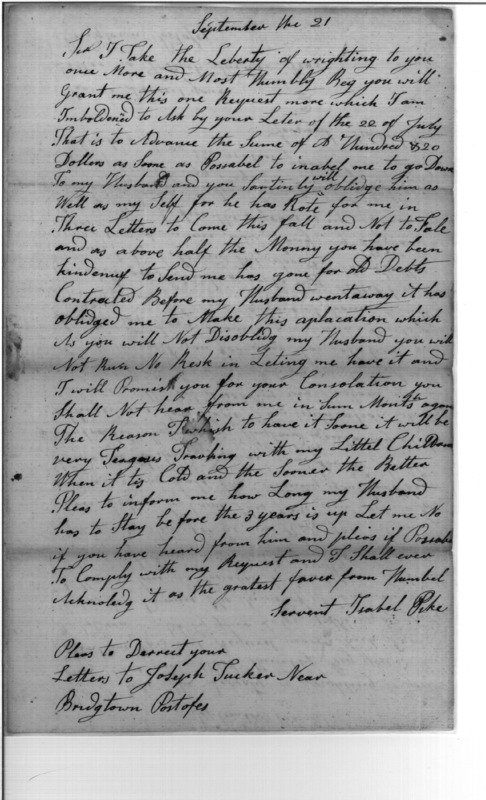 September the 21
Sir I Take the Leberty of wrighting to you
once More and Most Humbly Beg you will
Grant me this one Request more which I am
Imboldened to Ask by your Leter of the 22 of July
That is to Advance the Sume of A Hundred & 20
Dollers as Soone as Possabel to inabel me to go Down
To my Husband and you Sertinly will oblidge him as
Well as my Self for he has Rote for me in
Three Letters to Come this fall and Not to Fale
and as above half the Monny you have been
kindenuf to Send me has gone for old Debts
Contrected Before my Husband went away it has
obliged me to Make this aplacation which
As you will Not Disoblidg my Husband you will
Not Run No Resk in Leting me have it and
I will Promis you for your Consolation you
Shall Not hear from me in Sum Months again
The Reason I whish to have it Soone it will be
very Teagous Travling with my Littel Children
When it tis Cold and the Sooner the Better
Pleas to inform me how Long my Husband
has to Stay before the 3 years is up Let me No
if you have heard from him and pleas if Possabel
To Comply with my Request and I Shall ever
Acknoledg it as the gratest faver from Humbel
Servent Isabel Pike
Pleas to Derrect your
Letters to Joseph Tucker Near
Bridgtown Postofes